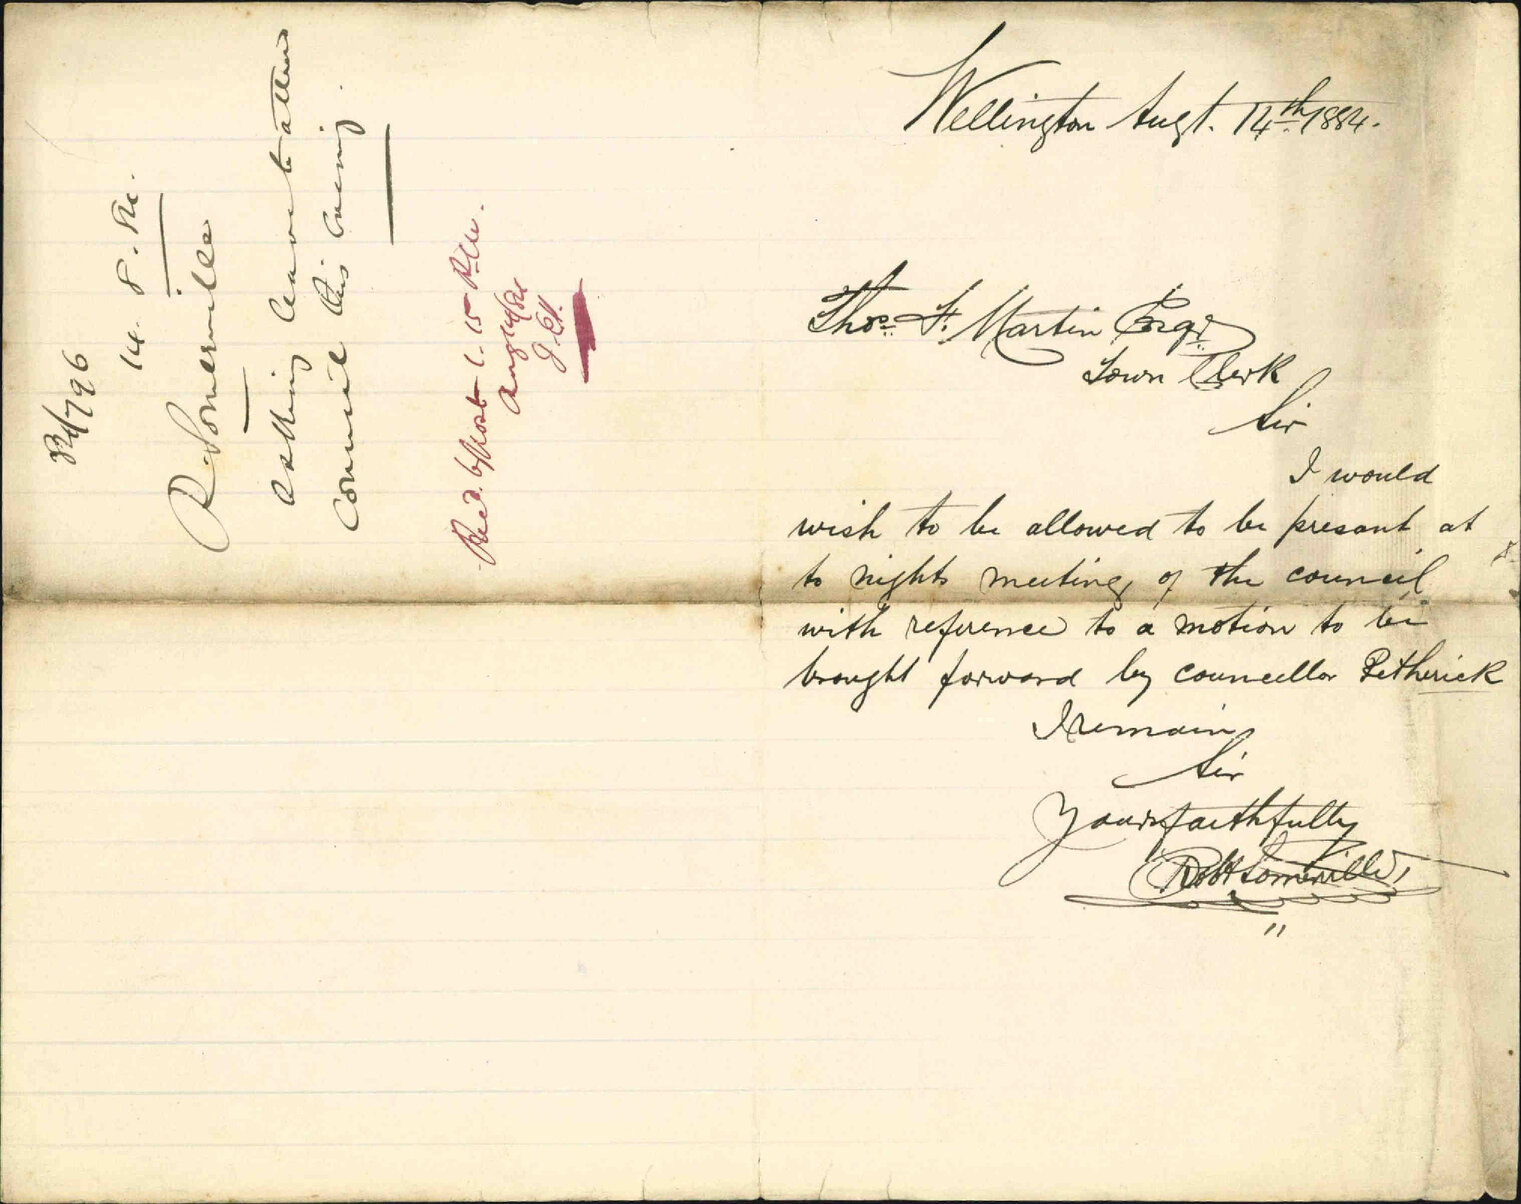 Wellington Augt. 14th 1884.
Thos. F. Martin Esqr
Town Clerk
Sir
I would
wish to be allowed to be present at
to nights meeting of the council
with reference to a motion to be
brought forward by councellor Petherick
I remain
Sir
Yours faithfully
Robt Somerville
84/796
14. 8. 84.
R. Somerville
asking leave to attend
Council this evening.
Recd. by Post 1.15 P.M.
Aug 14/84